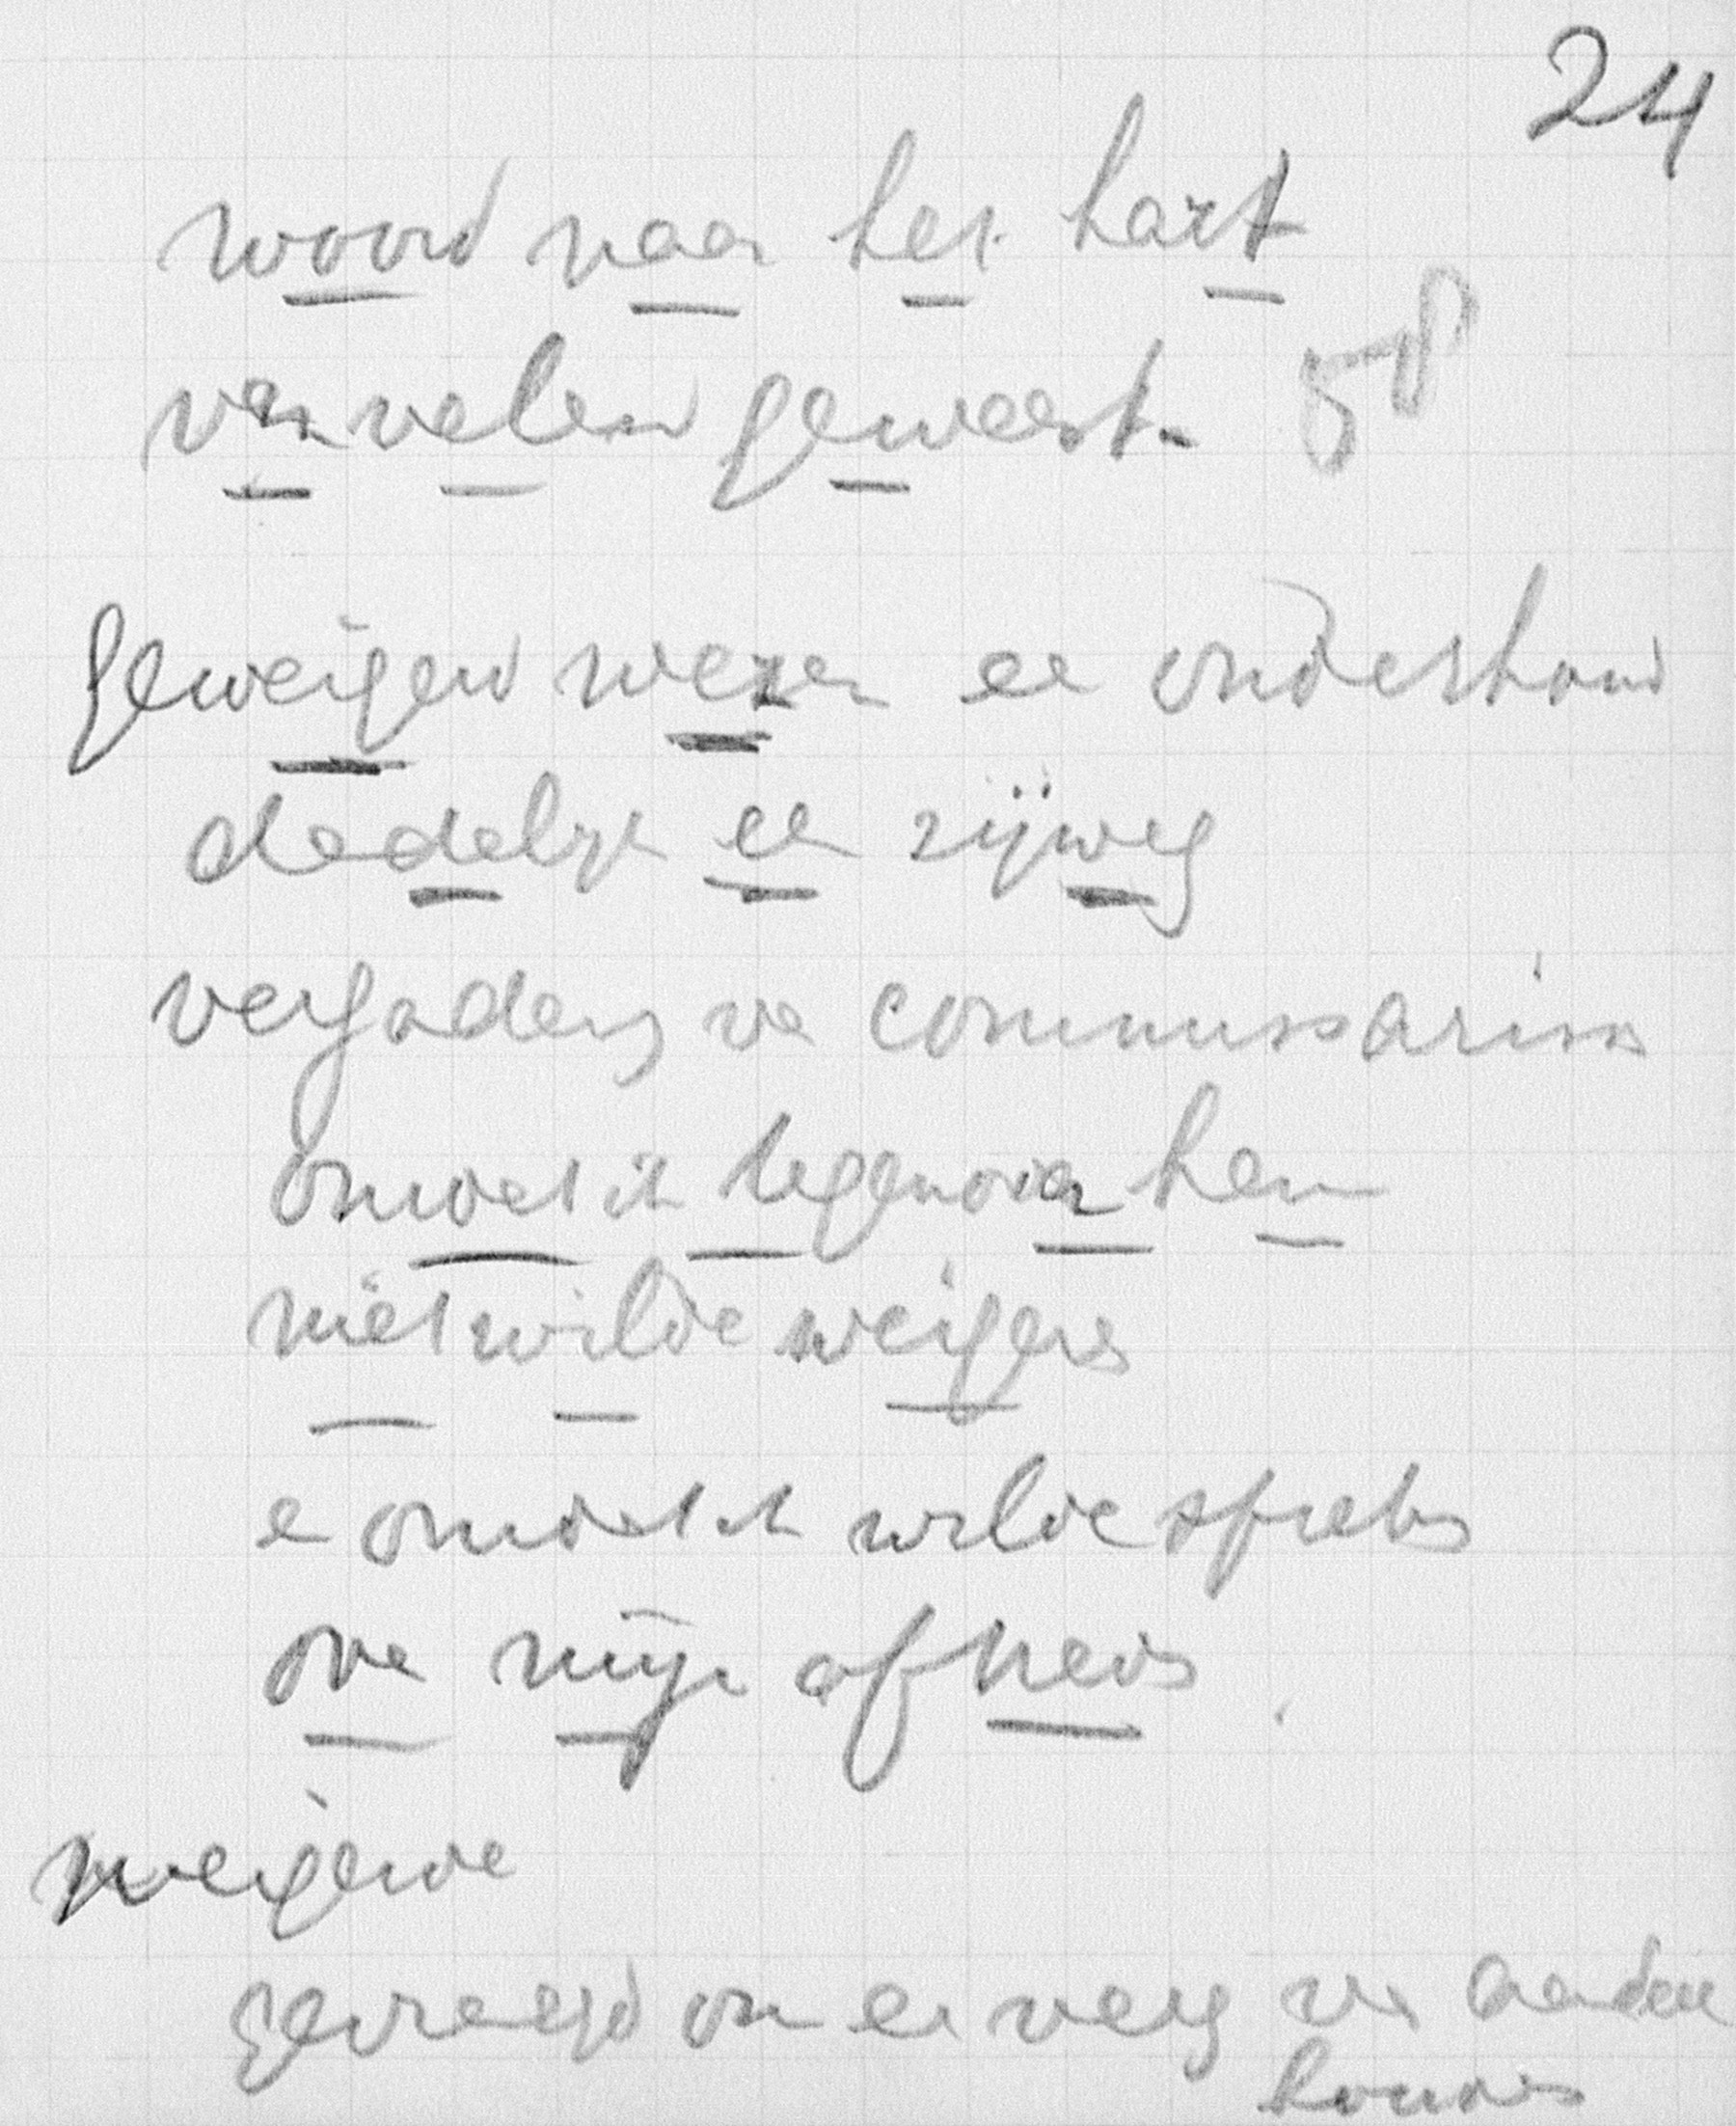 24
woord naar het hart
van velen geweest. 58
geweigerd wezen ee onderhoud
dadelijk ee zijweg
vergaderg va commissariss
omdat ik tegenover hem
niet wilde weigers
e omdat ik wilde spreke
ove mijn
weigerde
gevraagd om ee verg va aandeel
houders